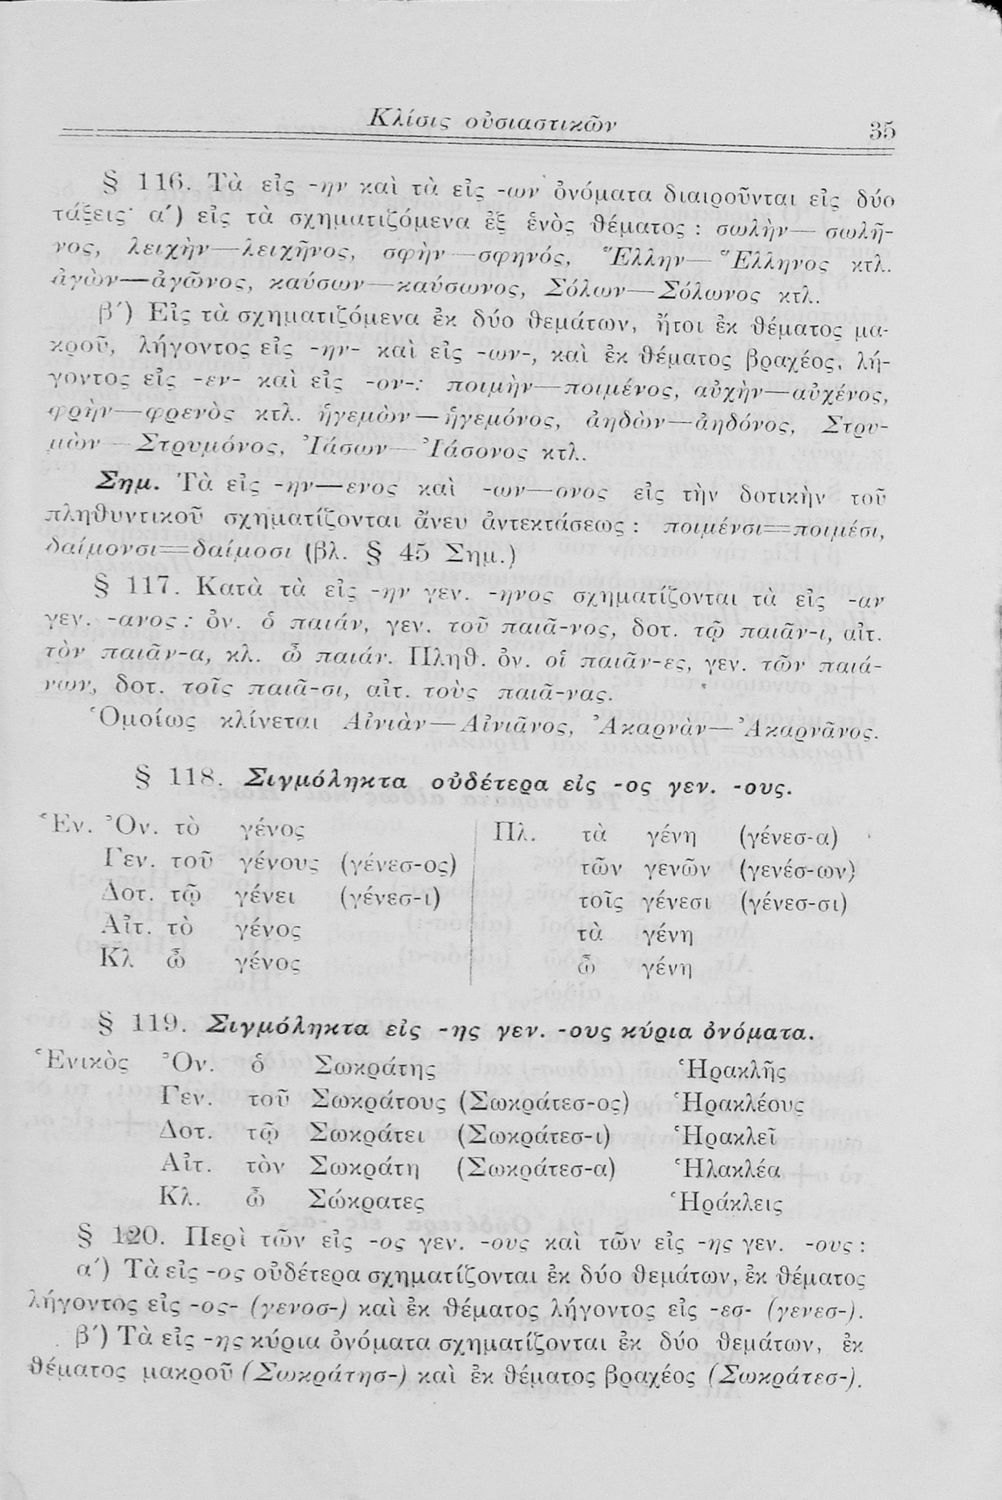 Κλίσις οὐσιαστικῶν 35
§ 116. Τὰ εἰς -ην καὶ τὰ εἰς -ων ὀνόματα διαιροῦνται εἰς δύο
τάξεις· α΄) εἰς τὰ σχηματιζόμενα ἐξ ἑνὸς θέματος : σωλὴν— σωλῆ-
νος, λειχὴν—λειχῆνος, σφὴν—σφηνός, Ἕλλην—Ἕλληνος κτλ.
ἀγὼν—ἀγῶνος, καύσων—καύσωνος, Σόλων—Σόλωνος κτλ.
β΄) Εἰς τὰ σχηματιζόμενα ἐκ δύο θεμάτων, ἤτοι ἐκ θέματος μα-
κροῦ, λήγοντος εἰς -ην- καὶ εἰς -ων-, καὶ ἐκ θέματος βραχέος, λή-
γοντος εἰς -εν- καὶ εἰς -ον-: ποιμὴν—ποιμένος, αὐχὴν—αὐχένος,
φρὴν—φρενὸς κτλ. ἡγεμὼν—ἡγεμόνος, ἀηδὼν—ἀηδόνος, Στρυ-
μὼν—Στρυμόνος, Ἰάσων—Ἰάσονος κτλ.
Σημ. Τὰ εἰς -ην—ενος καὶ -ων—ονος εἰς τὴν δοτικὴν τοῦ
πληθυντικοῦ σχηματίζονται ἄνευ ἀντεκτάσεως : ποιμένσι=ποιμέσι,
δαίμονσι=δαίμοσι (βλ. § 45 Σημ.)
§ 117. Κατὰ τὰ εἰς -ην γεν. -ηνος σχηματίζονται τὰ εἰς -αν
γεν. -ανος : ὀν. ὁ παιάν, γεν. τοῦ παιᾶ-νος, δοτ. τῷ παιᾶν-ι, αἰτ.
τὸν παιᾶν-α, κλ. ὦ παιάν. Πληθ. ὀν. οἱ παιᾶν-ες, γεν. τῶν παιά-
νων, δοτ. τοῖς παιᾶ-σι, αἰτ. τοὺς παιᾶ-νας.
Ὁμοίως κλίνεται Αἰνιὰν—Αἰνιᾶνος, Ἀκαρνὰν—Ἀκαρνᾶνος.
§ 118. Σιγμόληκτα οὐδέτερα εἰς -ος γεν. -ους.
Ἑν. Ὀν. τὸ γένος Πλ. τὰ γένη (γένεσ-α)
Γεν. τοῦ γένους (γένεσ-ος) τῶν γενῶν (γενέσ-ων)
Δοτ. τῷ γένει (γένεσ-ι) τοῖς γένεσι (γένεσ-σι)
Αἰτ. τὸ γένος τὰ γένη
Κλ ὦ γένος ὦ γένη
§ 119. Σιγμόληκτα εἰς -ης γεν. -ους κύρια ὀνόματα.
Ἑνικὸς Ὀν. ὁ Σωκράτης Ἡρακλῆς
Γεν. τοῦ Σωκράτους (Σωκράτεσ-ος) Ἡρακλέους
Δοτ. τῷ Σωκράτει (Σωκράτεσ-ι) Ἡρακλεῖ
Αἰτ. τὸν Σωκράτη (Σωκράτεσ-α) Ἡλακλέα
Κλ. ὦ Σώκρατες Ἡράκλεις
§ 120. Περὶ τῶν εἰς -ος γεν. -ους καὶ τῶν εἰς -ης γεν. -ους :
α΄) Τὰ εἰς -ος οὐδέτερα σχηματίζονται ἐκ δύο θεμάτων, ἐκ θέματος
λήγοντος εἰς -ος- (γενοσ-) καὶ ἐκ θέματος λήγοντος εἰς -εσ- (γενεσ-).
β΄) Τὰ εἰς -ης κύρια ὀνόματα σχηματίζονται ἐκ δύο θεμάτων, ἐκ
θέματος μακροῦ (Σωκράτησ-) καὶ ἐκ θέματος βραχέος (Σωκράτεσ-).